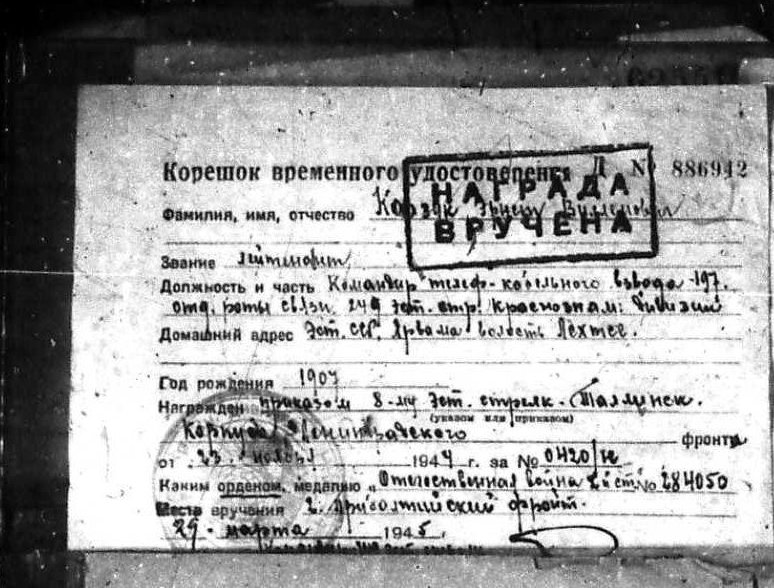 Корешок временного удостоверения Д № 886942
НАГРАДА
ВРУЧЕНА
Фамилия, имя, отчество
Звание лейтенант
Должность и часть Командир телеф-кабельного взвода 197.
отд. роты связи 249 Эст. стр. Краснознам. дивизии
Домашний адрес Эст. ССР. Ярвама волость Лехтсе.
Год рождения 1907
Награжден приказом 8-му Эст. стрелк. Таллинск.
(указом или приказом)
Корпуса Ленинградского фронта
от 23. ноября 1944 г. за № 0420/н
Каким орденом, медалью „Отечественная война 2 ст. № 284050
Место вручения 2. Прибалтийский фронт.
29. марта 1945 г.